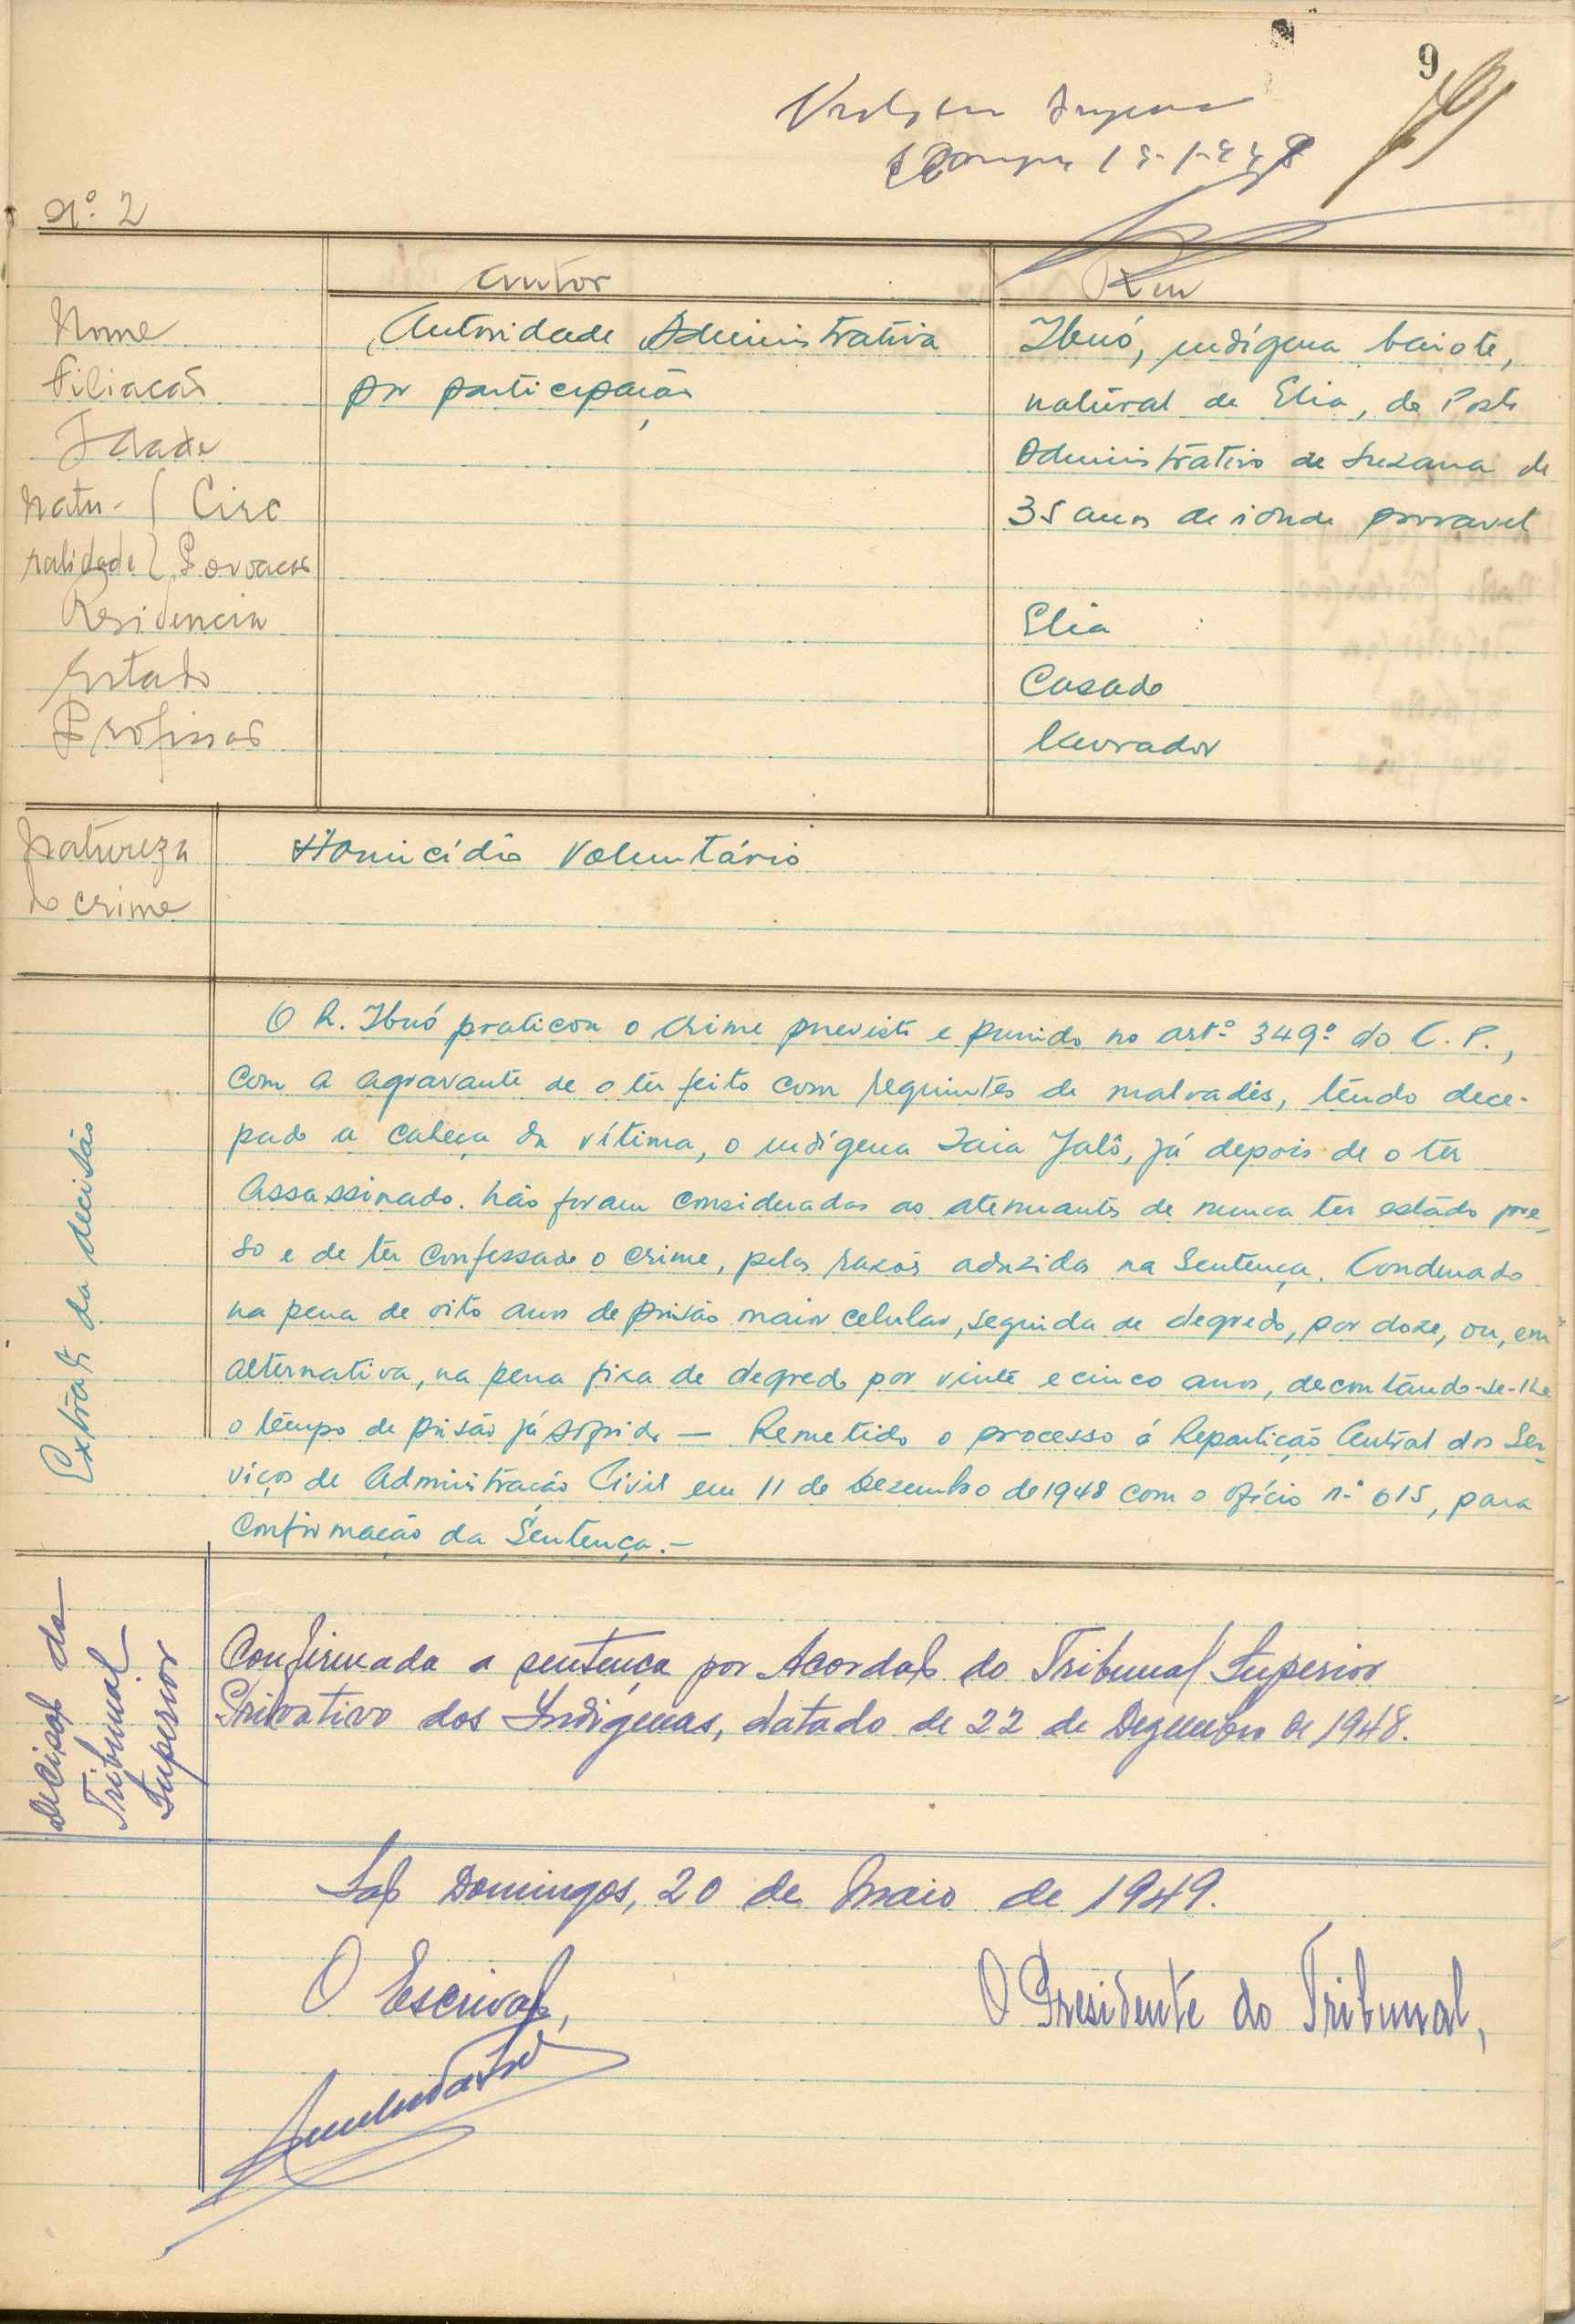 9
Nº. 2
Autor
Reu
Nome
Autoridade Administrativa
Ibuó, indígena baiote,
Filiacão
por participação
natural de Elia, do Posto
Idade
Administrativo de Suzana de
Natu- ( Circ
35 anos de idade provavel
ralidade { Povoacão
Residencia
Elia
Estado
Casado
Profissão
lavrador
Natureza
do crime
Homicídio Voluntário
Extrato da decisão
O R. Ibuó praticou o crime previsto e punido no artº. 349º. do C. P.,
com a agravante de o ter feito com requintes de malvadês, tendo dece-
pado a cabeça da vítima, o indígena Jaia Jalô, já depois de o ter
assassinado. Não foram consideradas as atenuantes de nunca ter estado pre-
so e de ter confessado o crime, pelas razões aduzidas na Sentença. Condenado
na pena de oito anos de prisão maior celular, seguida de degredo, por doze, ou, em
alternativa, na pena fixa de degredo por vinte e cinco anos, descontando-se-lhe
o tempo de prisão já sofrida — Remetido o processo á Repartição Central dos Ser-
viços de Administração Civil em 11 de Dezembro de 1948 com o ofício nº 615, para
confirmação da Sentença.-
Decisão do
Tribunal
Superior
Confirmada a sentença por Acordão do Tribunal Superior
Privativo dos Indígenas, datado de 22 de Dezembro de 1948.
São Domingos, 20 de Maio de 1949.
O Escrivão,
O Presidente do Tribunal,